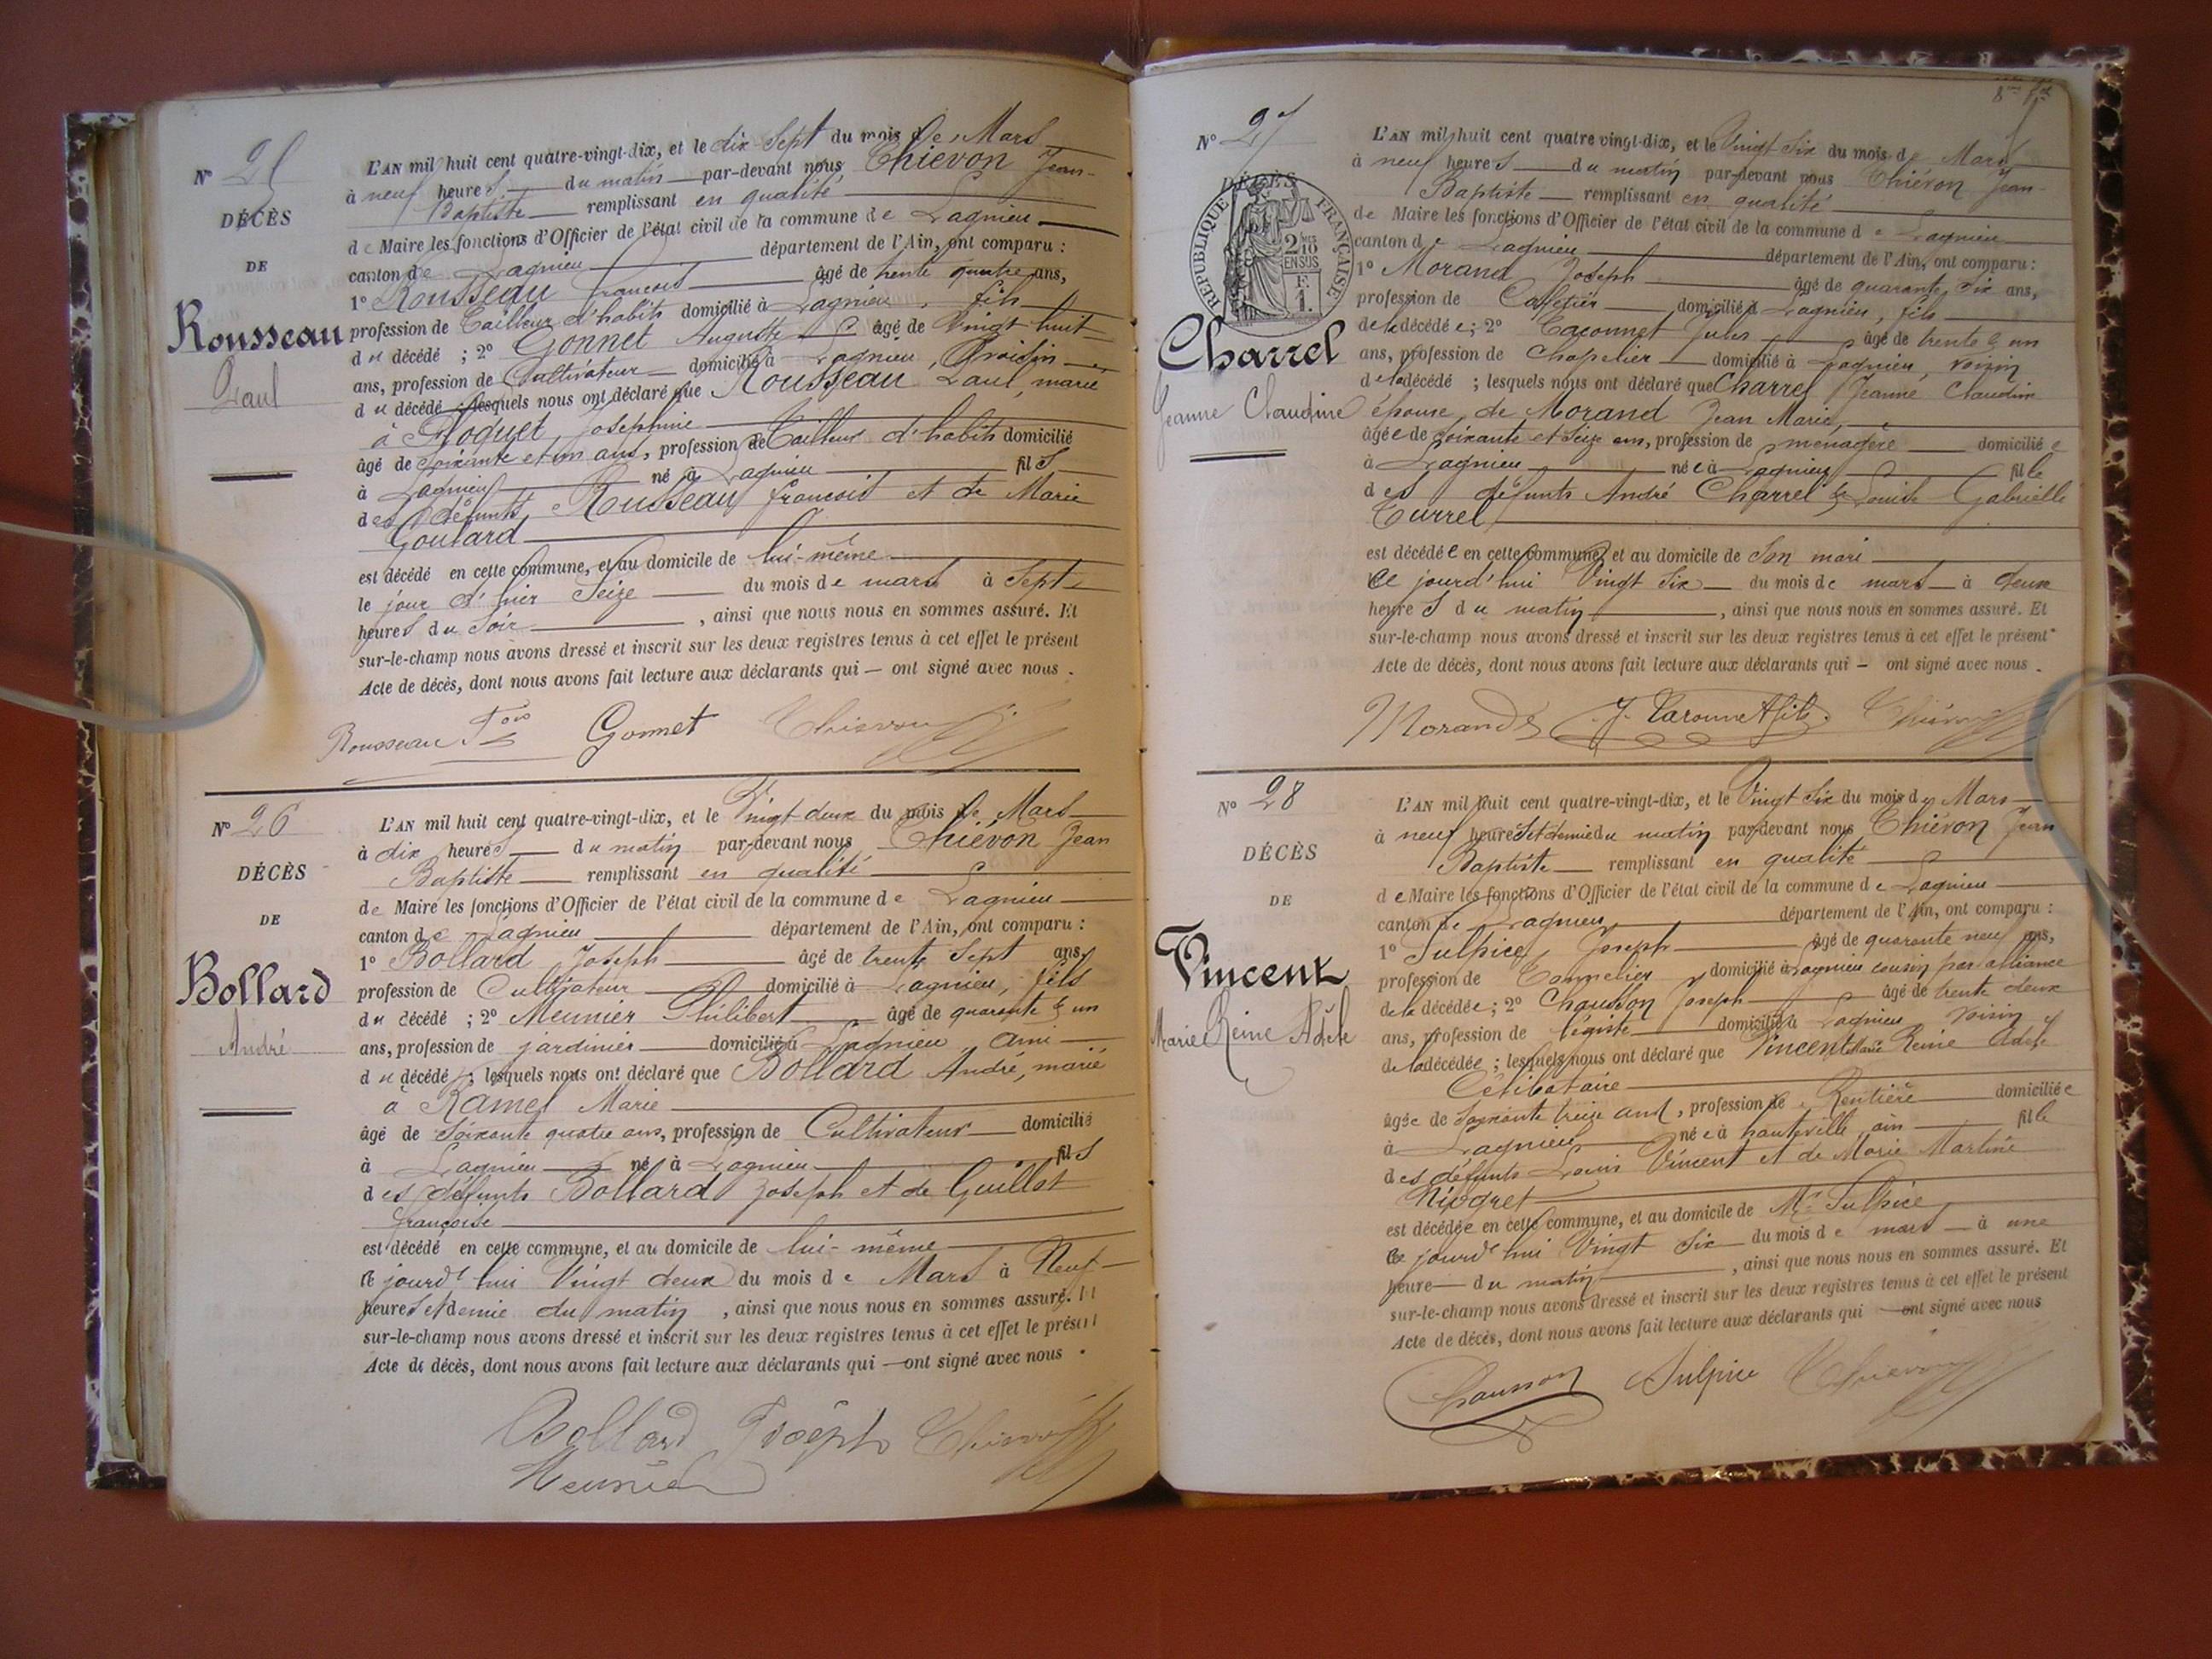 N° 25
DÉCÈS
DE
Rousseau
Paul
L'AN mil huit cent quatre-vingt-dix, et le dix Sept du mois de Mars
à neuf heures du matin par-devant nous Thiévon Jean-
Baptiste remplissant en qualité
de Maire les fonctions d'Officier de l'état civil de la commune de Lagnieu
canton de Lagnieu département de l'Ain, ont comparu :
1° Rousseau francois âgé de trente quatre ans,
profession de Tailleur d'habits domicilié à Lagnieu, fils
du décédé ; 2° Gonnet Auguste âgé de Vingt huit
ans, profession de Cultivateur domicilié à Lagnieu, Voisin
du décédé ; lesquels nous ont déclaré que Rousseau Paul, marié
à Floquet, Josephine
âgé de soixante et un ans, profession de Tailleur d'habits domicilié
à Lagnieu né à Lagnieu fils
des défunts Rousseau francois et de Marie
Goutard
est décédé en cette commune, et au domicile de lui-même
le jour d'hier Seize du mois de mars à Sept
heures du Soir , ainsi que nous nous en sommes assuré. Et
sur-le-champ nous avons dressé et inscrit sur les deux registres tenus à cet effet le présent
Acte de décès, dont nous avons fait lecture aux déclarants qui — ont signé avec nous .
Rousseau Fois Gonnet Thiévon
N° 26
DÉCÈS
DE
Bollard
André
L'AN mil huit cent quatre-vingt-dix, et le Vingt deux du mois de Mars
à dix heures du matin par-devant nous Thiévon Jean
Baptiste remplissant en qualité
de Maire les fonctions d'Officier de l'état civil de la commune de Lagnieu
canton de Lagnieu département de l'Ain, ont comparu :
1° Bollard Joseph âgé de trente Sept ans,
profession de Cultivateur domicilié à Lagnieu, fils
du décédé ; 2° Meunier Philibert âgé de quarante & un
ans, profession de jardinier domicilié à Lagnieu, Ami
du décédé ; lesquels nous ont déclaré que Bollard André, marié
à Ramel Marie
âgé de Soixante quatre ans, profession de Cultivateur domicilié
à Lagnieu né à Lagnieu fils
des défunts Bollard Joseph et de Guillot
françoise
est décédé en cette commune, et au domicile de lui-même
ce jourd'hui Vingt deux du mois de Mars à Neuf
heures et demie du matin , ainsi que nous nous en sommes assuré. Et
sur-le-champ nous avons dressé et inscrit sur les deux registres tenus à cet effet le présent
Acte de décès, dont nous avons fait lecture aux déclarants qui — ont signé avec nous .
Bollard Joseph Thiévon
Meunier
8me
N° 27
DÉCÈS
RÉPUBLIQUE FRANÇAISE
2 MES
10
EN SUS
F.
1.
Charrel
Jeanne Claudine
L'AN mil huit cent quatre vingt-dix, et le Vingt Six du mois de Mars
à neuf heures du matin par-devant nous Thiévon Jean-
Baptiste remplissant en qualité
de Maire les fonctions d'Officier de l'état civil de la commune de Lagnieu
canton de Lagnieu département de l'Ain, ont comparu :
1° Morand Joseph âgé de quarante Six ans,
profession de Cafetier domicilié à Lagnieu, fils
de la décédée ; 2° Taconnet Jules âgé de trente & un
ans, profession de Chapelier domicilié à Lagnieu, voisin
de la décédé ; lesquels nous ont déclaré que Charrel Jeanne Claudine
épouse de Morand Jean Marie,
âgée de Soixante et Seize ans, profession de ménagère domiciliée
à Lagnieu née à Lagnieu fille
des défunts André Charrel & Louise Gabrielle
Currel
est décédée en cette commune, et au domicile de Son mari
Ce jourd'hui Vingt Six du mois de mars à deux
heures du matin , ainsi que nous nous en sommes assuré. Et
sur-le-champ nous avons dressé et inscrit sur les deux registres tenus à cet effet le présent
Acte de décès, dont nous avons fait lecture aux déclarants qui — ont signé avec nous .
Morand J. Taconnet fils Thiévon
N° 28
DÉCÈS
DE
Vincent
Marie Reine Adèle
L'AN mil huit cent quatre-vingt-dix, et le Vingt Six du mois de Mars
à neuf heures et demie du matin par-devant nous Thiévon Jean
Baptiste remplissant en qualité
de Maire les fonctions d'Officier de l'état civil de la commune de Lagnieu
canton de Lagnieu département de l'Ain, ont comparu :
1° Sulpice, Joseph âgé de quarante neuf ans,
profession de Tonnelier domicilié à Lagnieu cousin par alliance
de la décédée ; 2° Chausson Joseph âgé de trente deux
ans, profession de légiste domicilié à Lagnieu Voisin
de la décédée ; lesquels nous ont déclaré que Vincent Marie Reine Adèle
Célibataire
âgée de Soixante treize ans, profession de Rentière domiciliée
à Lagnieu née à hauteville, ain fille
des défunts Louis Vincent et de Marie Martine
Niogret
est décédée en cette commune, et au domicile de Mr Sulpice
Ce jourd'hui Vingt Six du mois de mars à une
heure du matin , ainsi que nous nous en sommes assuré. Et
sur-le-champ nous avons dressé et inscrit sur les deux registres tenus à cet effet le présent
Acte de décès, dont nous avons fait lecture aux déclarants qui — ont signé avec nous
Chausson Sulpice Thiévon